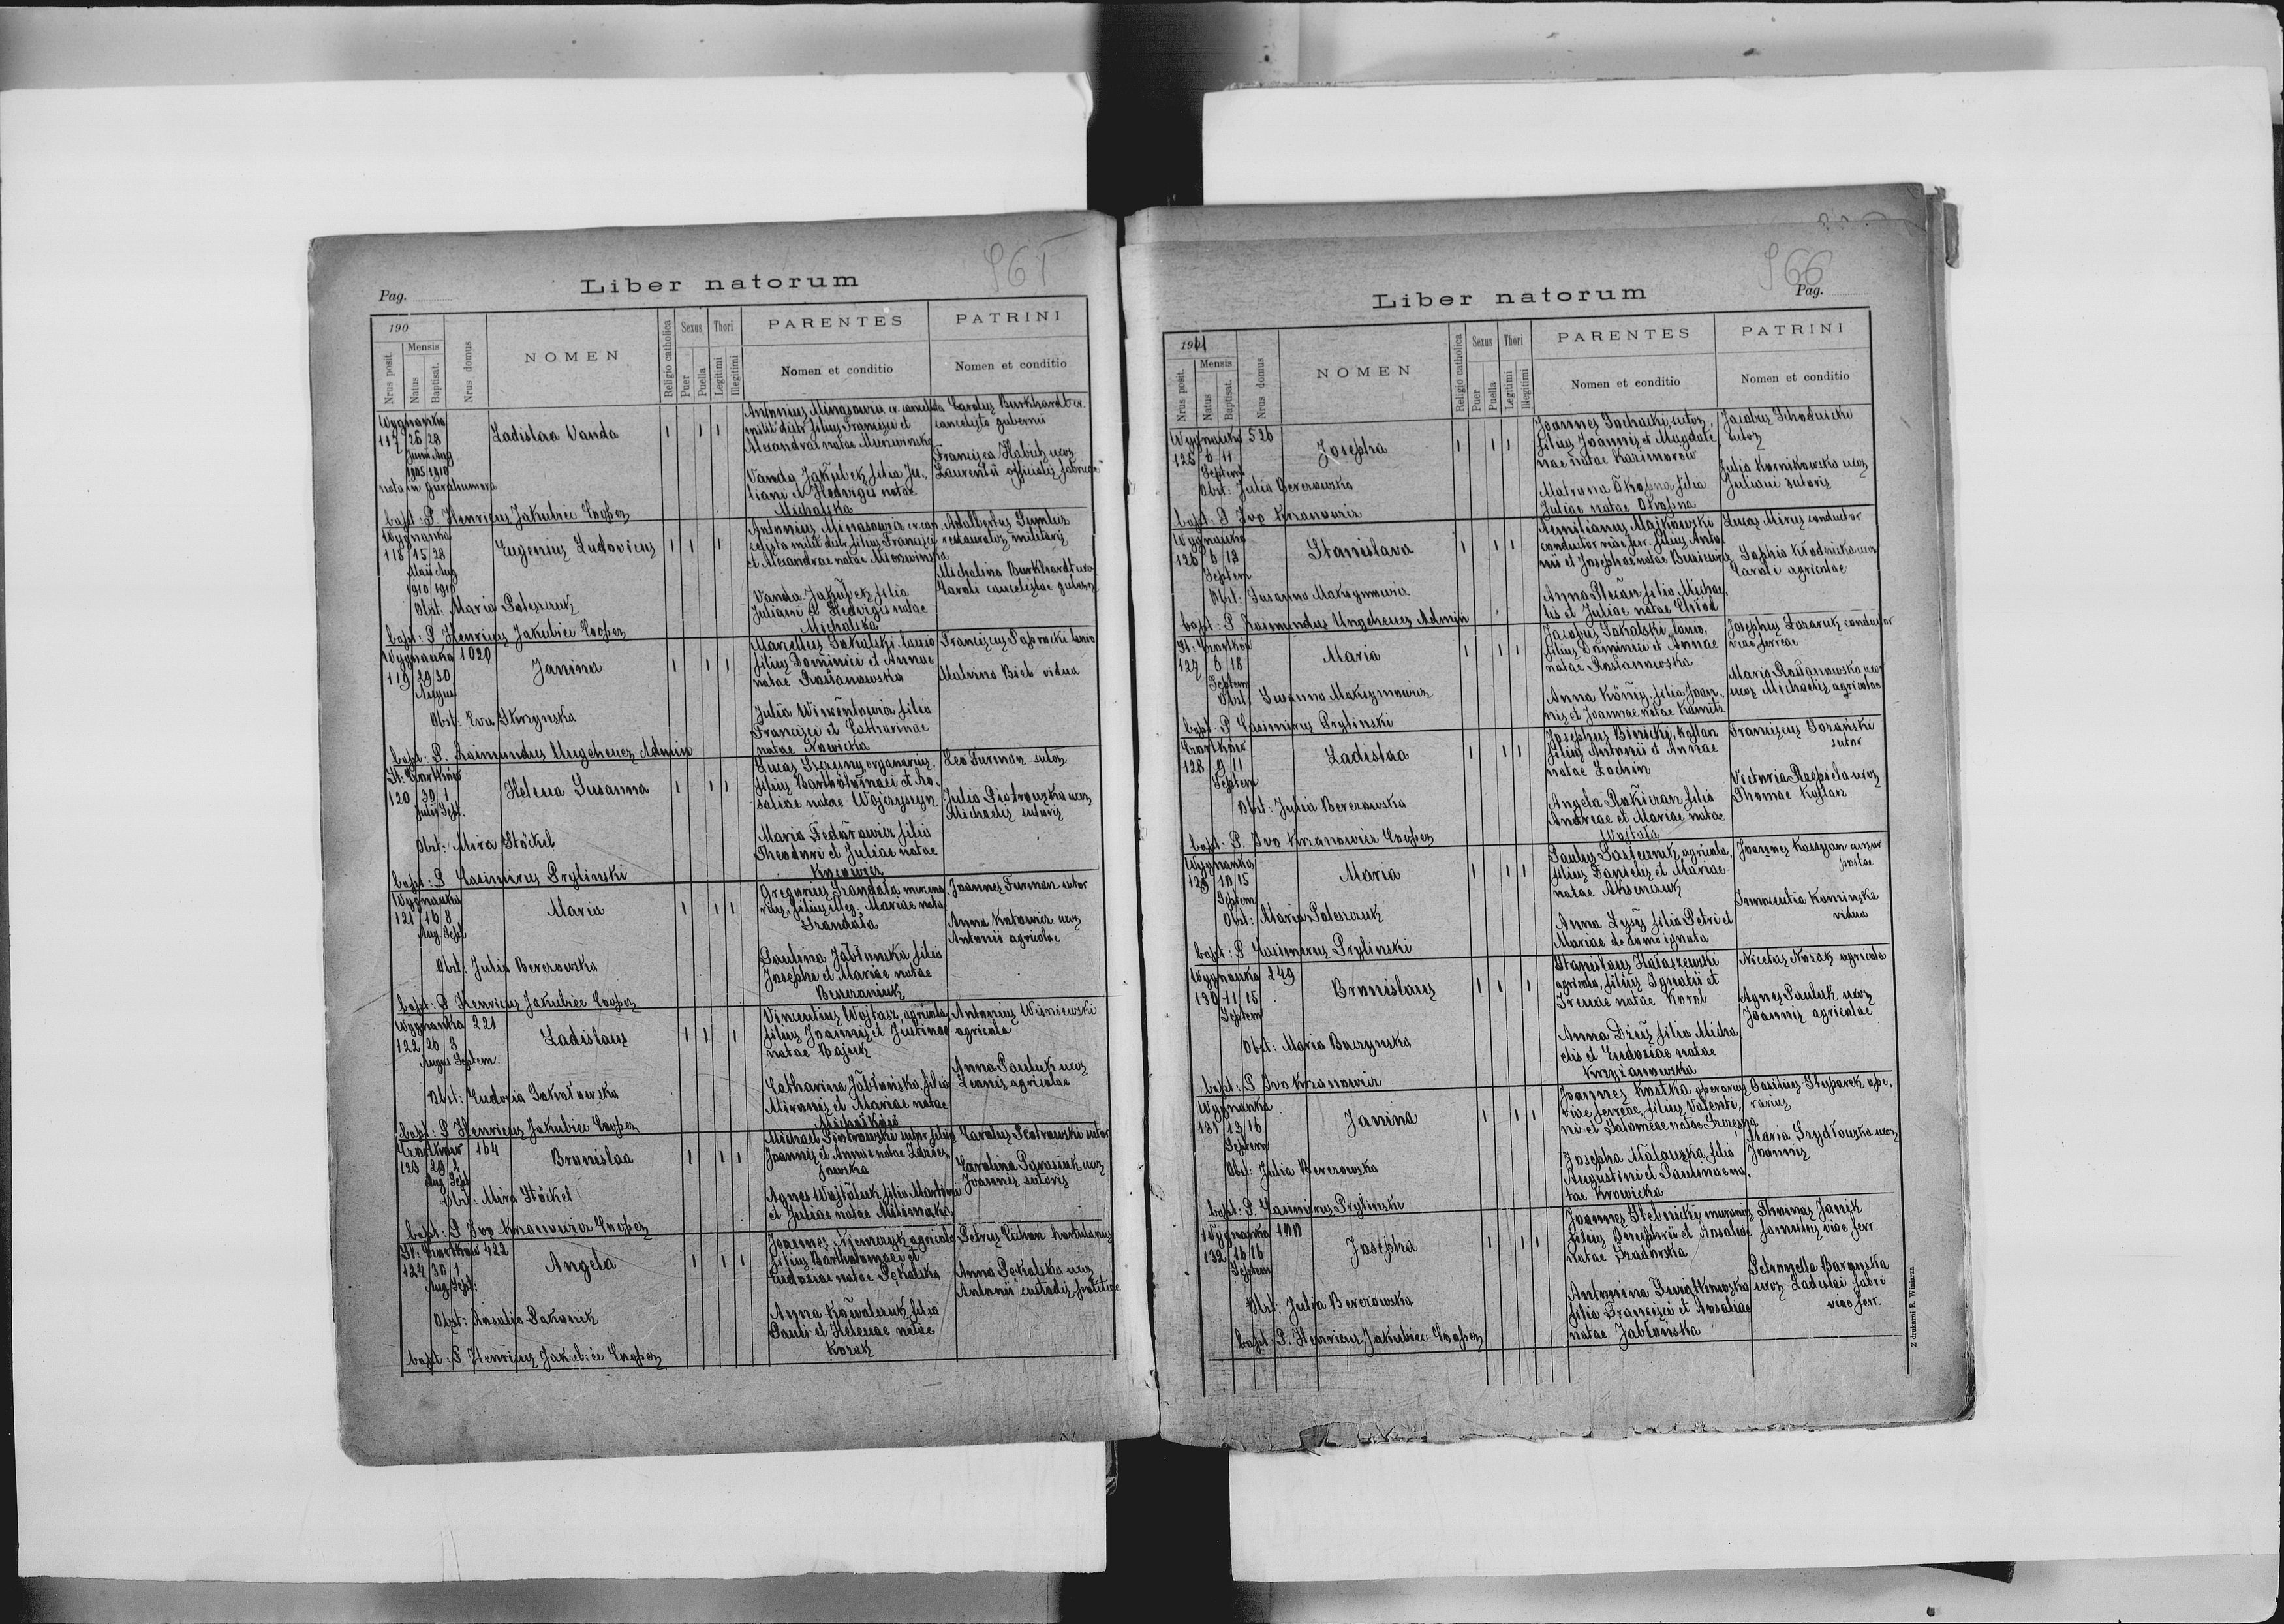 965
Pag.
Liber natorum
190
Mensis
Nrus posit.
Natus
Baptisat.
Nrus domus
NOMEN
Religio catholica
Sexus
Puer
Puella
Thori
Legitimi
Illegitimi
PARENTES
Nomen et conditio
PATRINI
Nomen et conditio
Wygnanka
117 26 28
Junii Aug
1905 1910
nata in Gurahumora
Ladislaa Vanda
1 1 1
Antonius Minasowicz cr. cancelista
milit. distr. filius Francisci et
Alexandrae natae Mrozwinska
Vanda Jakubek filia Ju-
liani et Hedvigis natae
Michalska
Carolus Burkhardt cr.
cancelista gubernii
Francisca Habich uxor
Laurentii officialis fabricae
bapt: P. Henricus Jakubiec Cooper
Wygnanka
118 15 28
Maii Aug
1910 1910
Eugenius Ludovicus
1 1 1
Antonius Minasowicz cr. can
celista milit. distr. filius Francisci
et Alexandrae natae Mrozwinska
Vanda Jakubek filia
Juliani et Hedvigis natae
Michalska
Adalbertus Gumluz
restaurator militaris
Michalina Burkhardt uxor
Caroli cancelistae gubern
Obst: Maria Poleszczuk
bapt: P Henricus Jakubiec Cooper
Wygnanka 1020
119 29 30
August
Janina
1 1 1
Marcellus Sakalski lanio
filius Dominici et Annae
natae Roslanowska
Julia Wincentowicz filia
Francisci et Catharinae
natae Nowicka
Franciscus Paprocki lanio
Malvina Bieb vidua
Obst: Eva Skrzynska
bapt: P. Raimundus Ungeheuer Admin
St. Czortków
120 30 1
Julii Sept.
Helena Susanna
1 1 1
Lucas Szczęsny organarius,
filius Bartholomaei et Ro-
saliae natae Wojczyszyn
Maria Fedorowicz filia
Theodori et Juliae natae
Leo Furman sutor
Julia Piotrowska uxor
Michaelis sutoris
Obst: Mira Stöckel
bapt: P Casimirus Prylinski
Wygnanka
121 16 8
Aug. Sept
Maria
1 1 1
Gregorius Grandola murara
rius, filius illeg. Mariae nata
Grandola
Paulina Jabłonska filia
Josephi et Mariae natae
Berezaniuk
Joannes Furman sutor
Anna Kutowicz uxor
Antonii agricolae
Obst: Julia Berezowska
bapt: P Henricus Jakubiec Cooper
Wygnanka 221
122 26 8
August Septem.
Ladislaus
1 1 1
Vincentius Wojtasz, agricola,
filius Joannis et Justinae
natae Bajuk
Catharina Jabłońska, filia
Mironis et Mariae natae
Antonius Wiśniewski
agricola
Anna Pauluk uxor
Leonis agricolae
Obst: Eudoxia Sokołowska
bapt: P Henricus Jakubiec Cooper
Czortków 164
123 29 2
Aug Sept
Bronislaa
1 1 1
Michael Piotrowski sutor filius
Joannis et Annae natae
Agnes Wojtaluk filia Martini
et Juliae natae
Carolus Piotrowski sutor
Carolina Parasiuk uxor
Joannis sutoris
Obst: Mira Stöckel
bapt: P Ivo Krzanowicz Cooper
St. Czortków 422
124 30 1
Aug. Sept:
Angela
1 1 1
Joannes Niemczyk, agricola
filius Bartholomaei et
Eudoxiae natae Pękalska
Anna Kowalczuk filia
Pauli et Helenae natae
Kozak
Anna Pękalska uxor
Antonii custodis
Obst: Rosalia Pakownik
bapt: P Henricus Jakubiec Cooper
966
Pag.
Liber natorum
1911
Mensis
Nrus posit.
Natus
Baptisat.
Nrus domus
NOMEN
Religio catholica
Sexus
Puer
Puella
Thori
Legitimi
Illegitimi
PARENTES
Nomen et conditio
PATRINI
Nomen et conditio
Wygnanka 526
125 6 11
Septem
Josepha
1 1 1
Joannes Sochacki, sutor,
filius Joannis et Magdale
nae natae Kazimorow
Matrona Okopna filia
Juliae natae Okropna
Jacobus Schodnicki
sutor
Julia Karnikowska uxor
Juliani sutoris
Obst: Julia Berezowska
bapt: P Ivo Krzanowicz
Wygnanka
126 6 13
Septem
Stanislava
1 1 1
Aemilianus Majkowski
conductor viae ferr. filius Anto
nii et Josephae natae
Anna Plecan filia Michae,
lis et Juliae natae
Lucas Mirus conductor
Sophia Kłodnicka uxor
Caroli agricolae
Obst: Susanna Maksymowicz
bapt: P Raimundus Ungeheuer Admin
St. Czortków
127 6 18
Septem
Maria
1 1 1
Jacobus Sakalski, lanio,
filius Dominici et Annae
natae Roslanowska
Anna König, filia Joan,
nis et Joannae natae Kamitz
Josephus Lazaruk conductor
viae ferreae
Maria Roslanowska uxor
uxor Michaelis agricolae
Obst: Susanna Maksymowicz
bapt: P Casimirus Prylinski
Czortków
128 9 11
Septem
Ladislaa
1 1 1
Josephus Binicki, Kaflarz
filius Antonii et Annae
natae Lachin
Angela Rokiczan filia
Andreae et Mariae natae
Wojtula
Franciscus Gorański
sutor
Victoria Rzepiela uxor
Thomae Kaflarz
Obst: Julia Berezowska
bapt: P. Ivo Krzanowicz Cooper
Wygnanka
129 10 15
Septem
Maria
1 1 1
Paulus Pasternik, agricola,
filius Danielis et Mariae
natae Aksenczuk
Anna Łysy filia Petri et
Mariae de domo ignota
Joannes Kassyan
postae
Innocentia Kaminska
vidua
Obst: Maria Poleszczuk
bapt: P Casimirus Prylinski
Wygnanka 249
130 11 15
Septem
Bronislaus
1 1 1
Stanislaus Hałaszewski
agricola, filius Ignatii et
Irenae natae Karol
Anna Dziuś filia Micha
elis et Eudoxiae natae
Krzyżanowska
Nicetas Nozak agricola
Agnes Pauluk uxor
Joannis agricolae
Obst: Maria Buczynska
bapt: P Ivo Krzanowicz
Wygnanka
131 13 16
Septem
Janina
1 1 1
Joannes Kostka operarius
viae ferreae, filius Valenti,
ni et Salomeae natae
Josepha Małowska, filia
Augustini et Paulinae na,
tae Krowicka
Basilius Stuparek ope,
rarius
Maria Szydłowska uxor
Joannis
Obst: Julia Berezowska
bapt: P. Casimirus Prylinski
Wygnanka 100
132 16 16
Septem
Josepha
1 1 1
Joannes Stelnicki murarius
filius Onuphrii et Rosaliae
natae Zradowska
Antonina Swiątkowska
filia Francisci et Rosaliae
natae Jabłońska
Thomas Janik
famulus viae ferr.
Petronella Baranska
uxor Ladislai fabri
viae ferr.
Obst: Julia Berezowska
bapt: P. Henricus Jakubiec Cooper
Z drukarni E. Winiarza